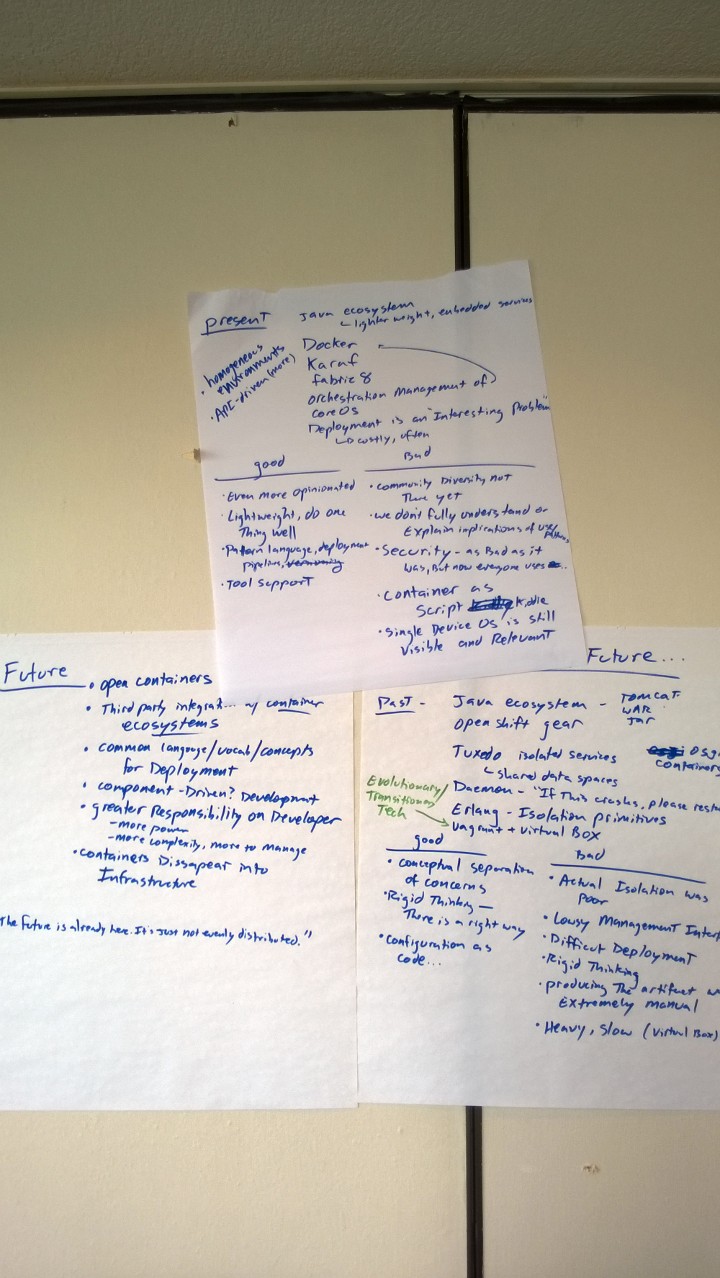 present
Java ecosystem
lighter weight, embedded services
• homogeneous
environments
• API-driven (more)
Docker
Karaf
fabric 8
orchestration Management of
core OS
Deployment is an "Interesting Problem"
costly, often
good
• Even more opinionated
• Lightweight, do one
Thing well
• Pattern language, deployment
pipeline, versioning
• Tool support
Bad
• community Diversity not
There yet
• we don't fully understand or
Explain implications of use/
• Security - as Bad as it
was, But now everyone uses
• Container as
Script Kiddie
• Single Device OS is still
visible and Relevant
Future
• open containers
• Third party integrat... w/ container
ecosystems
• common language/vocab/concepts
for Deployment
• component-Driven? Development
• greater Responsibility on Developer
- more power
- more complexity, more to manage
• Containers Dissapear into
Infrastructure
The future is already here. It's just not evenly distributed."
Future...
Past -
Java ecosystem - Tomcat
WAR
Jar
open shift gear
Tuxedo isolated services
shared data spaces
osgi
containers
Daemon - "If This crashes, please resta
Erlang - Isolation primitives
Vagrant + Virtual Box
Evolutionary/
Transitionary
Tech
good
• conceptual separation
of concerns
• Rigid Thinking -
There is a right way
• Configuration as
code...
Bad
• Actual Isolation was
poor
• Lousy Management Interf
• Difficut Deployment
• Rigid Thinking
• producing The artifact w
Extremely manual
• Heavy, slow (Virtual Box)